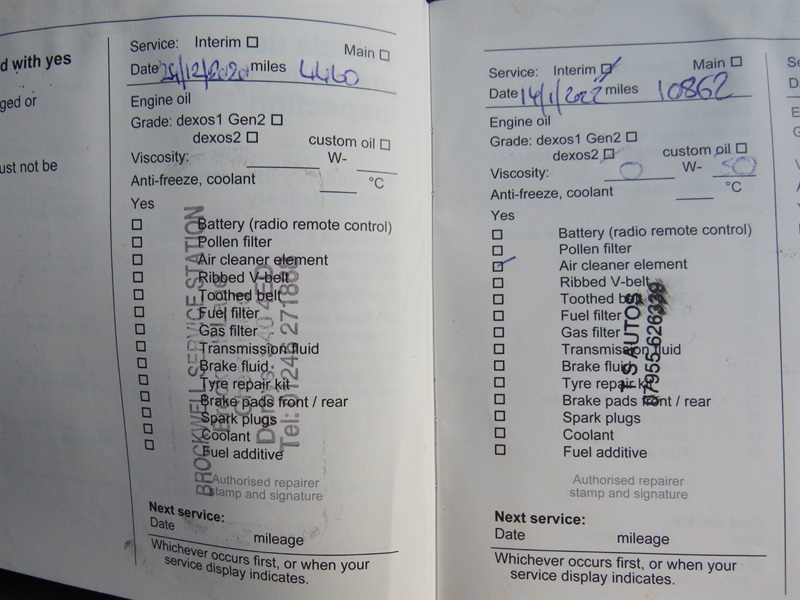 d with yes
ged or
ust not be
Service: Interim ☐ Main ☐
Date 24/12/2020 miles 4460
Engine oil
Grade: dexos1 Gen2 ☐
dexos2 ☐ custom oil ☐
Viscosity: W-
Anti-freeze, coolant °C
Yes
☐ Battery (radio remote control)
☐ Pollen filter
☐ Air cleaner element
☐ Ribbed V-belt
☐ Toothed belt
☐ Fuel filter
☐ Gas filter
☐ Transmission fluid
☐ Brake fluid
☐ Tyre repair kit
☐ Brake pads front / rear
☐ Spark plugs
☐ Coolant
☐ Fuel additive
BROCKWELL SERVICE STATION
Tel: 01246 271868
Authorised repairer
stamp and signature
Next service:
Date mileage
Whichever occurs first, or when your
service display indicates.
Service: Interim ☑ Main ☐
Date 14/1/2022 miles 10862
Engine oil
Grade: dexos1 Gen2 ☐
dexos2 ☑ custom oil ☐
Viscosity: 0 W-
Anti-freeze, coolant °C
Yes
☐ Battery (radio remote control)
☐ Pollen filter
☑ Air cleaner element
☐ Ribbed V-belt
☐ Toothed belt
☐ Fuel filter
☐ Gas filter
☐ Transmission fluid
☐ Brake fluid
☐ Tyre repair kit
☐ Brake pads front / rear
☐ Spark plugs
☐ Coolant
☐ Fuel additive
T S AUTOS
07955 626339
Authorised repairer
stamp and signature
Next service:
Date mileage
Whichever occurs first, or when your
service display indicates.